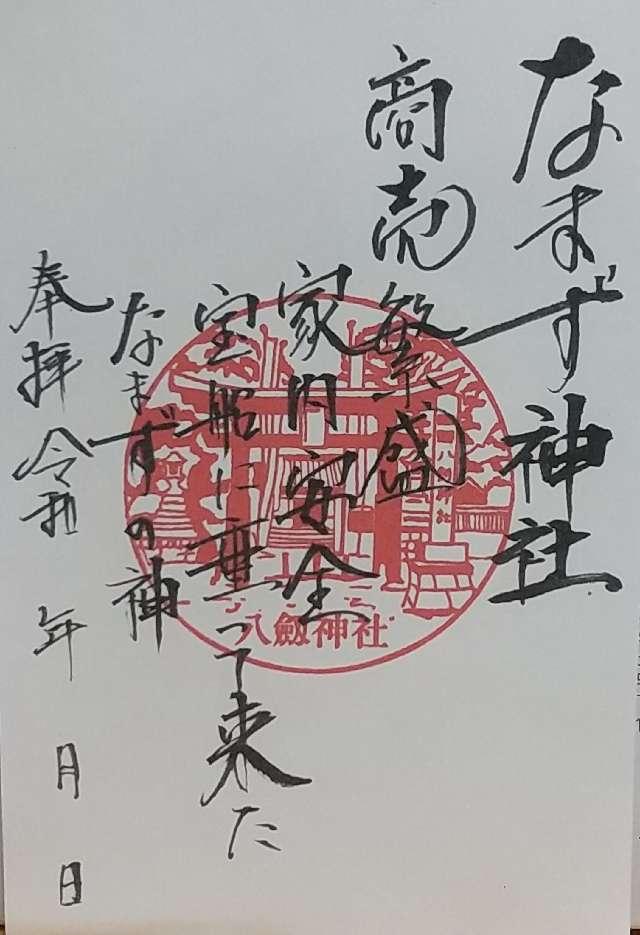 なまず神社
商売繁盛
家内安全
宝船に乗って来た
なまずの神
奉拝 令和 年 月 日
八剱神社
八剱神社